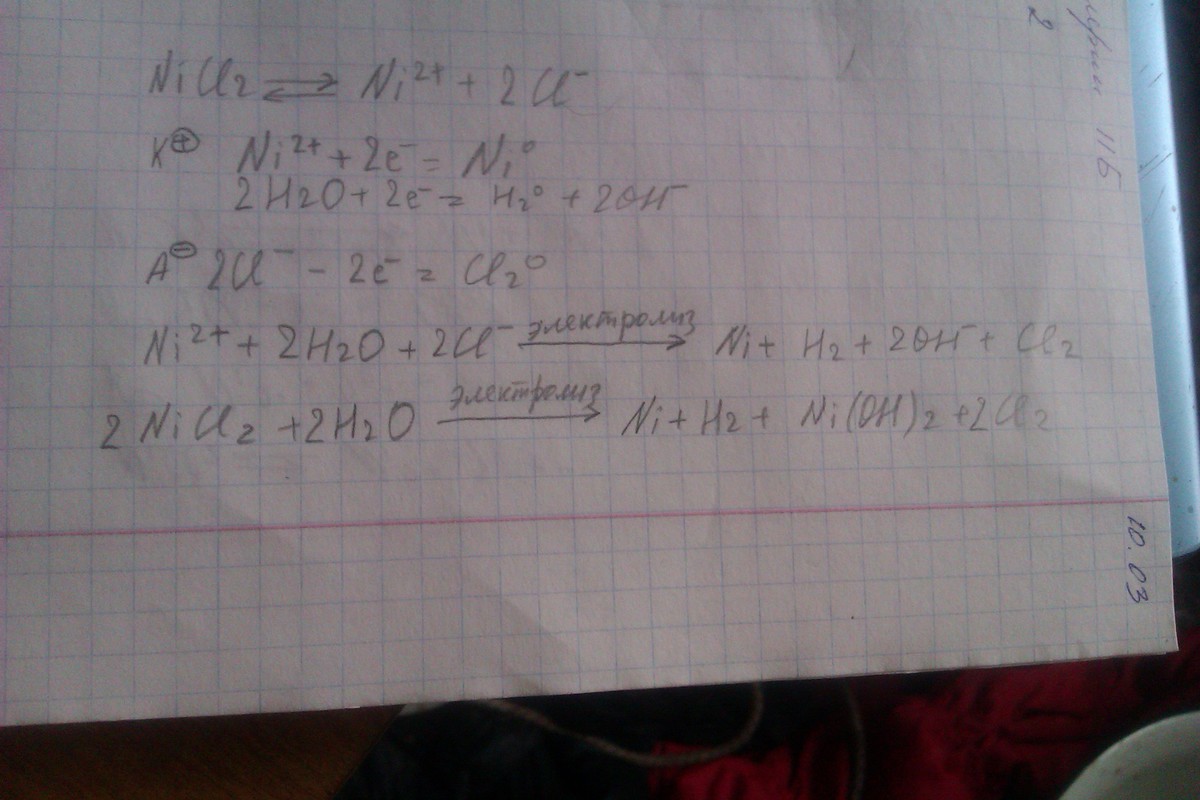 NiCl2 ⇌ Ni²⁺ + 2Cl⁻
K⊕ Ni²⁺ + 2e⁻ = Ni⁰
2H2O + 2e⁻ = H2⁰ + 2OH⁻
A⊖ 2Cl⁻ - 2e⁻ = Cl2⁰
Ni²⁺ + 2H2O + 2Cl⁻ электролиз → Ni + H2 + 2OH⁻ + Cl2
2NiCl2 + 2H2O электролиз → Ni + H2 + Ni(OH)2 + 2Cl2
11Б
2
10.03